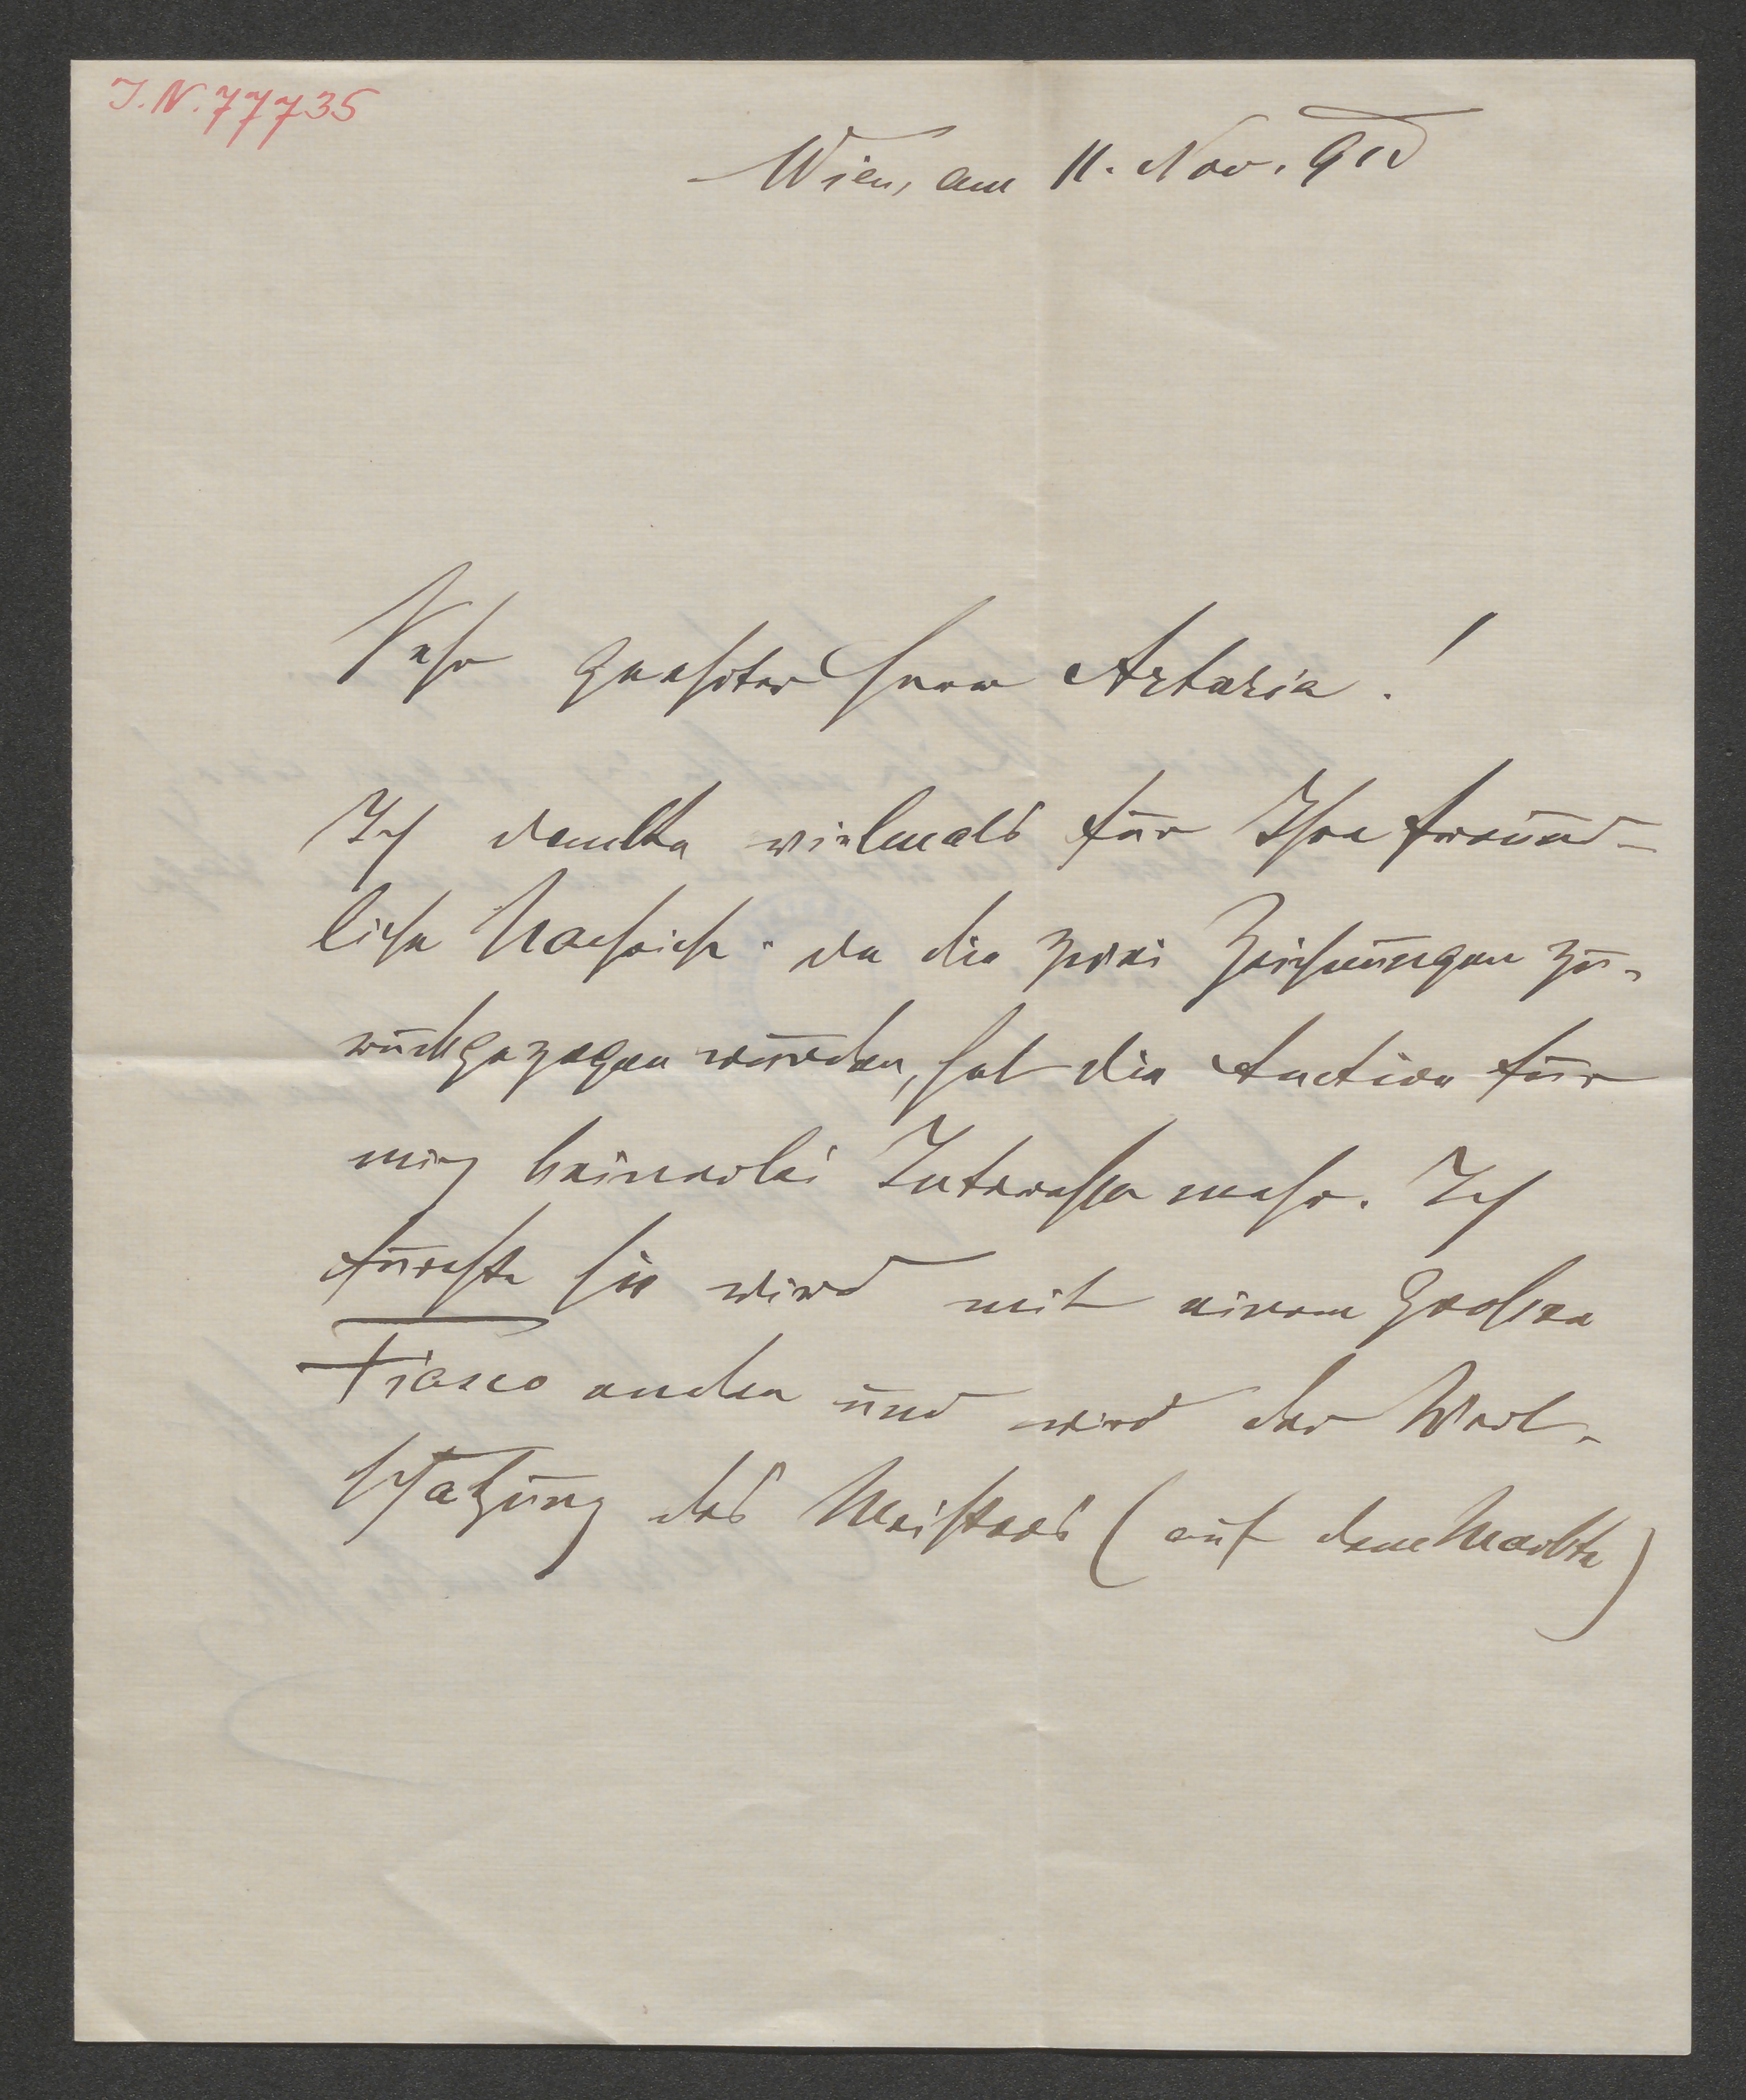 I.N. 77735
Wien, am 11. Nov. 915
Sehr geehrter Herr Artaria!
Ich danke vielmals für Ihre freund-
liche Nachricht. Da die zwei Zeichnungen zu-
rückgezogen wurden, hat die Auction für
mich keinerlei Interesse mehr. Ich
fürchte sie wird mit einem großen
Fiasco enden und wird der Wert-
schätzung des Meisters (auf dem Markte)